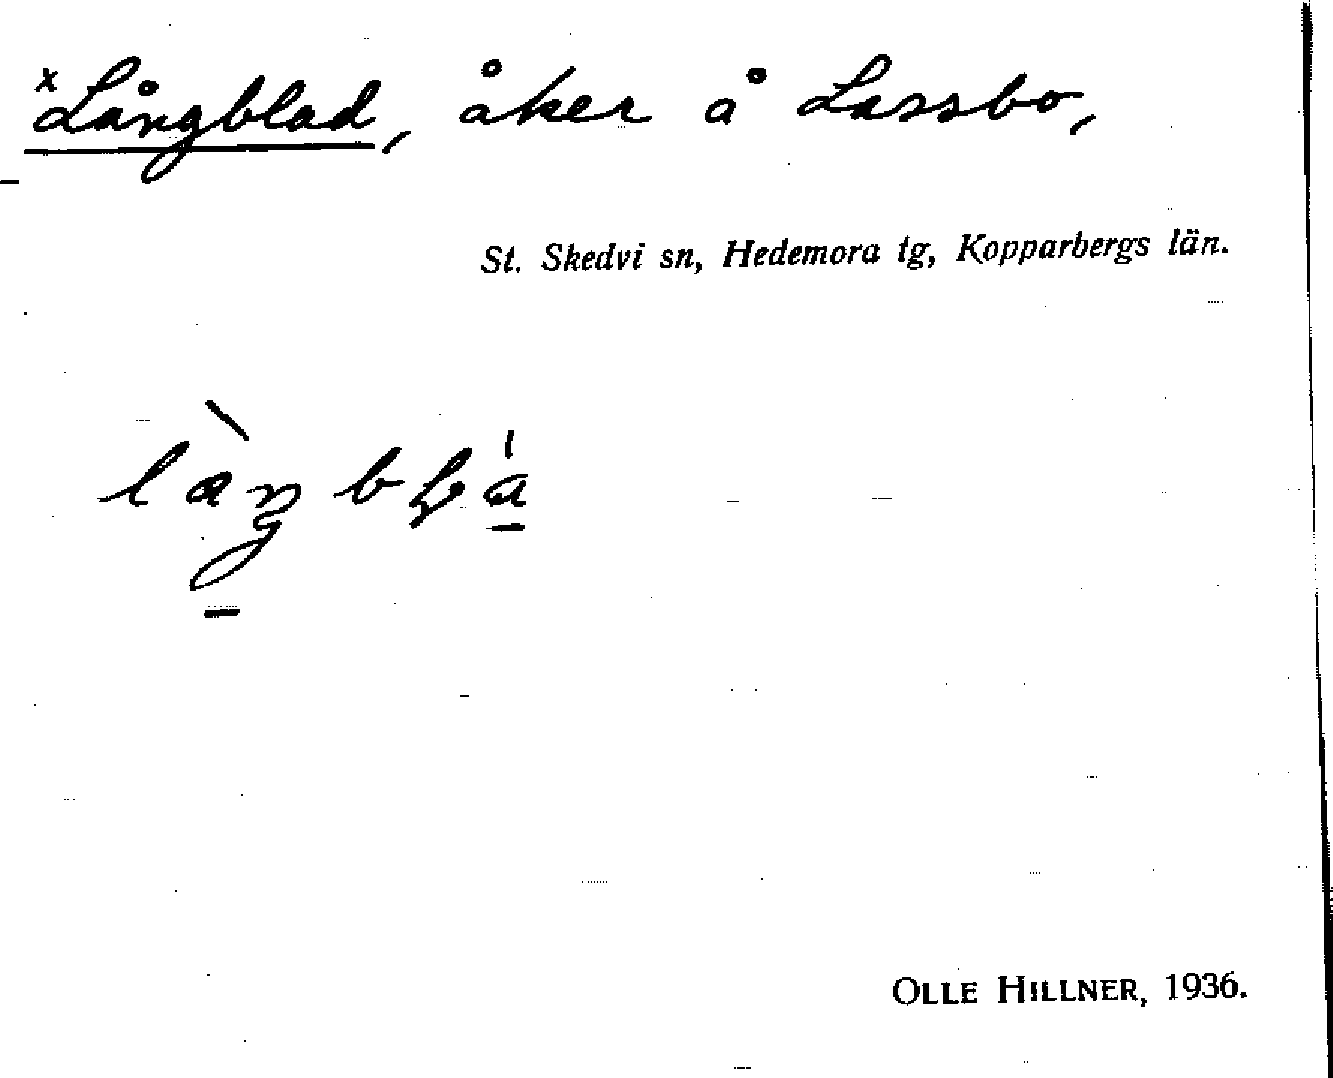 x Långblad, åker å Lassbo,
St. Skedvi sn, Hedemora tg, Kopparbergs län.
OLLE HILLNER, 1936.